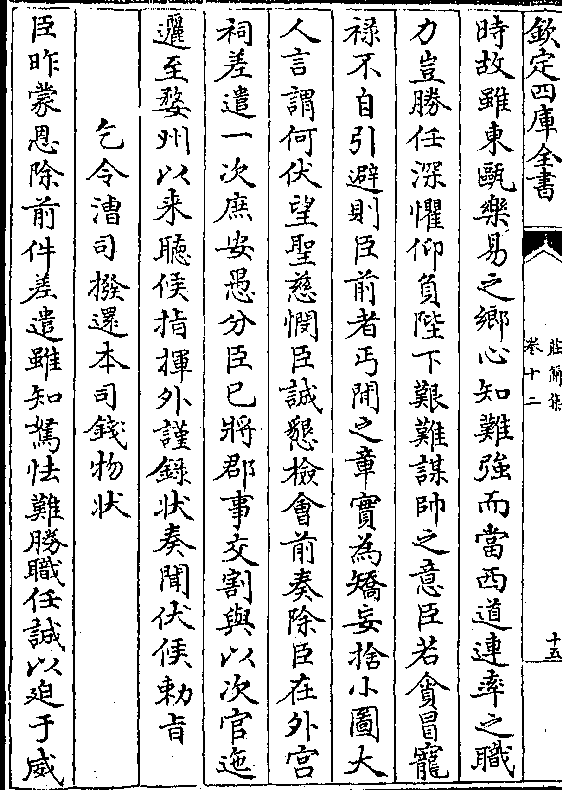 欽定四庫全書
莊簡集
卷十二
十五
時故雖東甌樂易之鄉心知難強而當西道連率之職
力豈勝任深懼仰負陛下艱難謀帥之意臣若貪冒寵
祿不自引避則臣前者丐閒之章實為矯妄捨小圖大
人言謂何伏望聖慈憫臣誠懇檢會前奏除臣在外宮
祠差遣一次庶安愚分臣已將郡事交割與以次官迤
邐至婺州以来聽候指揮外謹錄状奏聞伏候勅旨
乞令漕司撥還本司錢物状
臣昨蒙恩除前件差遣雖知駑怯難勝職任誠以迫于威